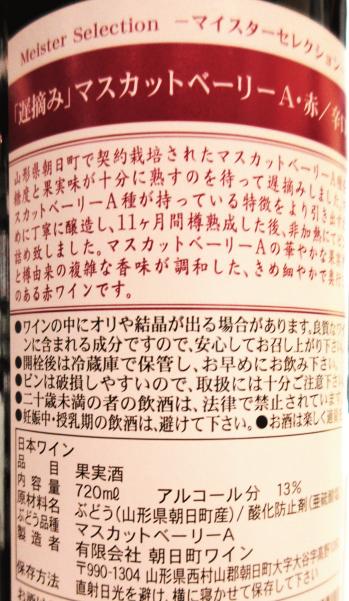 Meister Selection －マイスターセレクション
「遅摘み」マスカットベーリーA・赤／辛
山形県朝日町で契約栽培されたマスカットベーリーA種を
糖度と果実味が十分に熟すのを待って遅摘みしました。
スカットベーリーA種が持っている特徴をより引き出
めに丁寧に醸造し、11ヶ月間樽熟成した後、非加熱にて
詰め致しました。マスカットベーリーAの華やかな果実
と樽由来の複雑な香味が調和した、きめ細やかで奥行
のある赤ワインです。
●ワインの中にオリや結晶が出る場合があります。良質なワイ
ンに含まれる成分ですので、安心してお召し上がり下さい
●開栓後は冷蔵庫で保管し、お早めにお飲み下さい。
●ビンは破損しやすいので、取扱には十分ご注意下さい
●二十歳未満の者の飲酒は、法律で禁止されています
●妊娠中・授乳期の飲酒は、避けて下さい。●お酒は楽しく適量
日本ワイン
品目 果実酒
内容量 720mℓ アルコール分 13%
原材料名 ぶどう(山形県朝日町産)/酸化防止剤(亜硫酸塩
ぶどう品種 マスカットベーリーA
製造者 有限会社 朝日町ワイン
〒990-1304 山形県西村山郡朝日町大字大谷字高野
保存方法 直射日光を避け、横に寝かせて保存して下さい